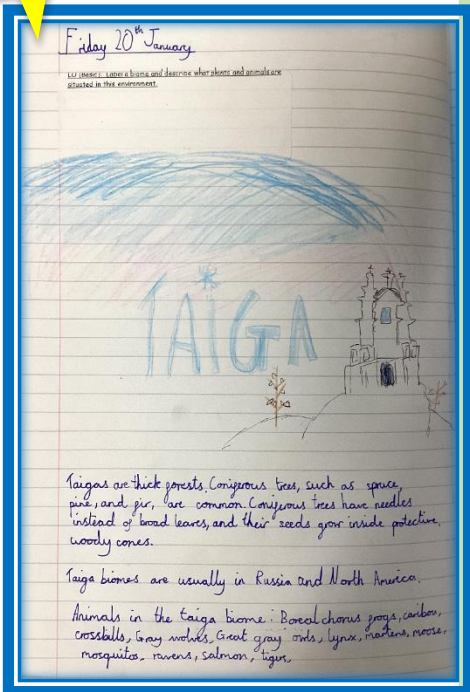 Friday 20th January
LO (NSC): Label a biome and describe what plants and animals are
situated in this environment.
TAIGA
Taigas are thick forests. Coniferous trees, such as spruce,
pine, and fir, are common. Coniferous trees have needles
instead of broad leaves, and their seeds grow inside protective,
woody cones.
Taiga biomes are usually in Russia and North America.
Animals in the taiga biome: Boreal chorus frogs, caribou,
crossbills, Gray wolves, Great gray owls, lynx, martens, moose,
mosquitos, ravens, salmon, tigers,